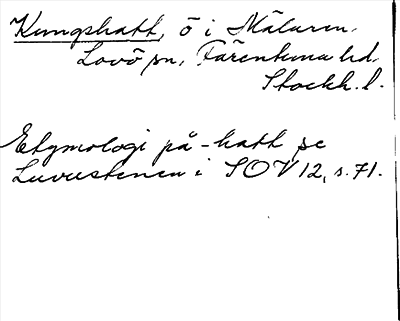 Kungshatt, ö i Mälaren.
Lovö sn, Färentuna hd.
Stockh. l.
Etymologi på -hatt se
Luvustenen i SOV 12, s. 71.